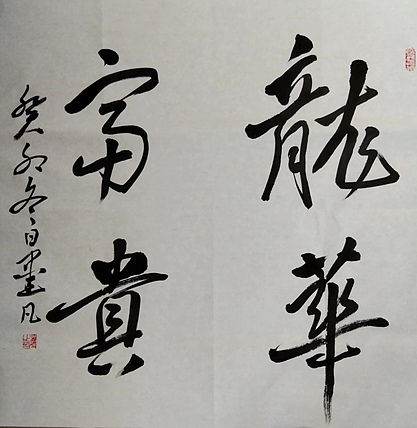 龍華
富貴
癸卯冬日書凡